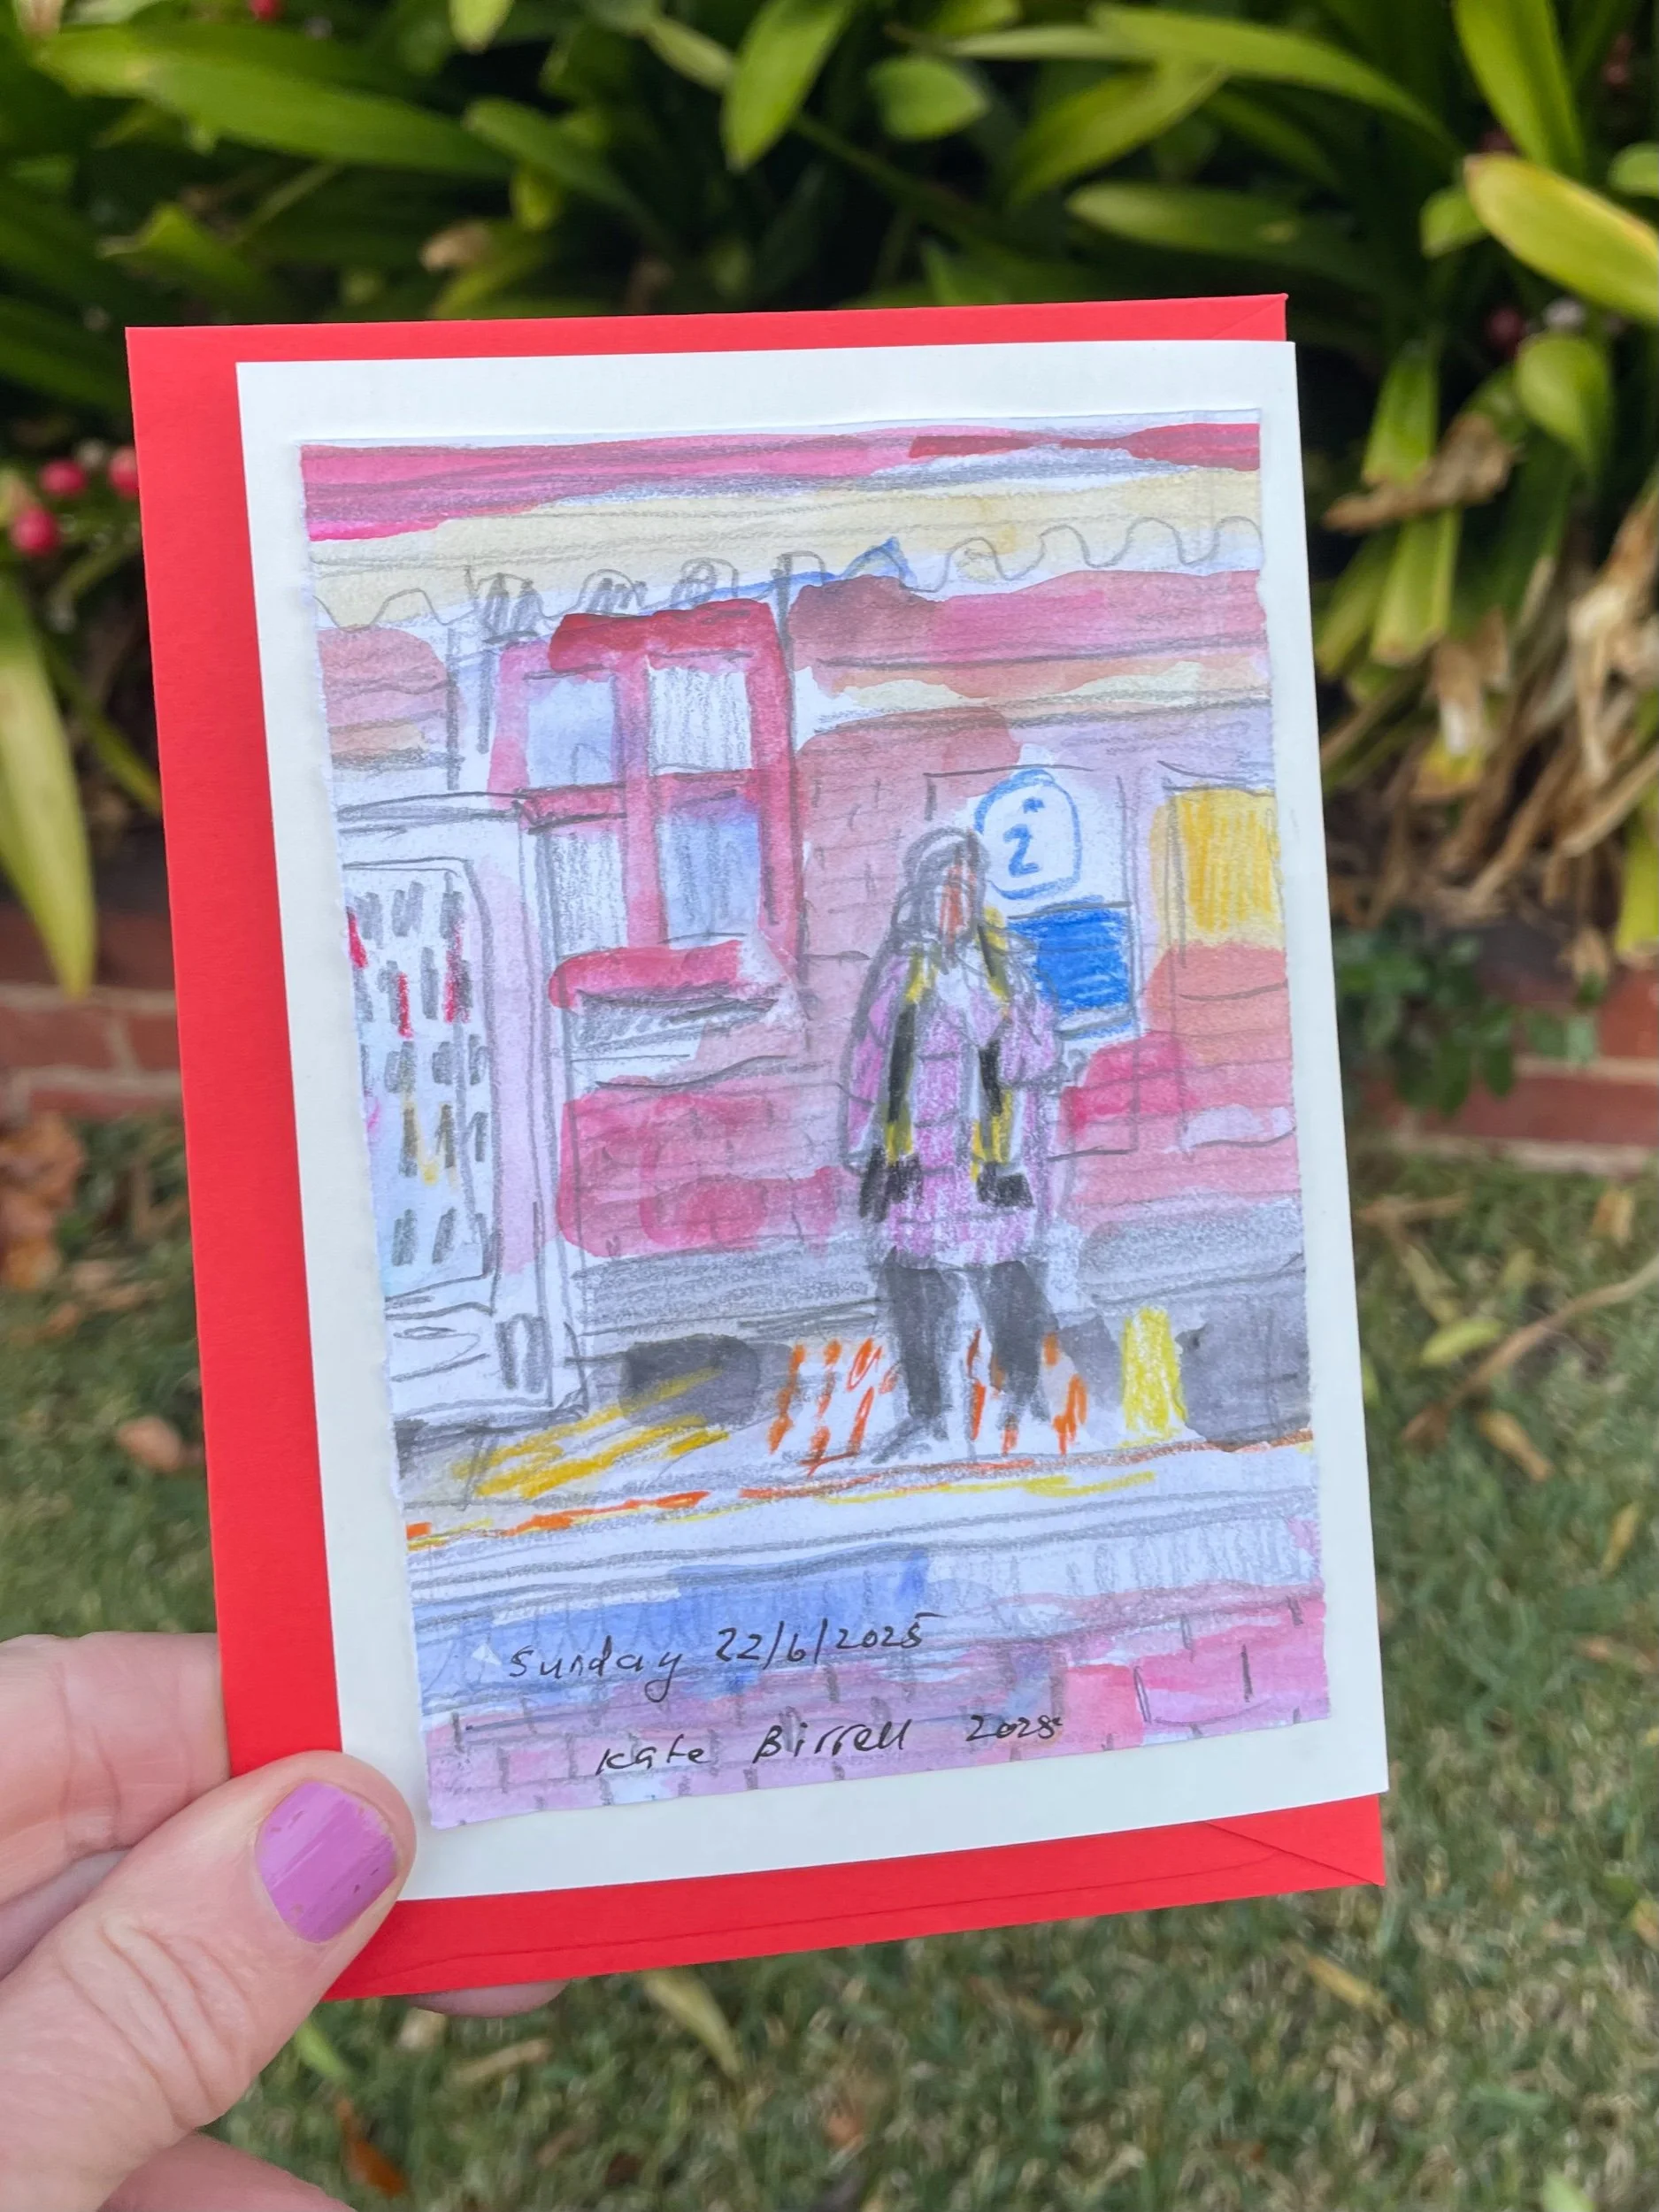 2
Sunday 22/6/2025
Kate Birrell 2025